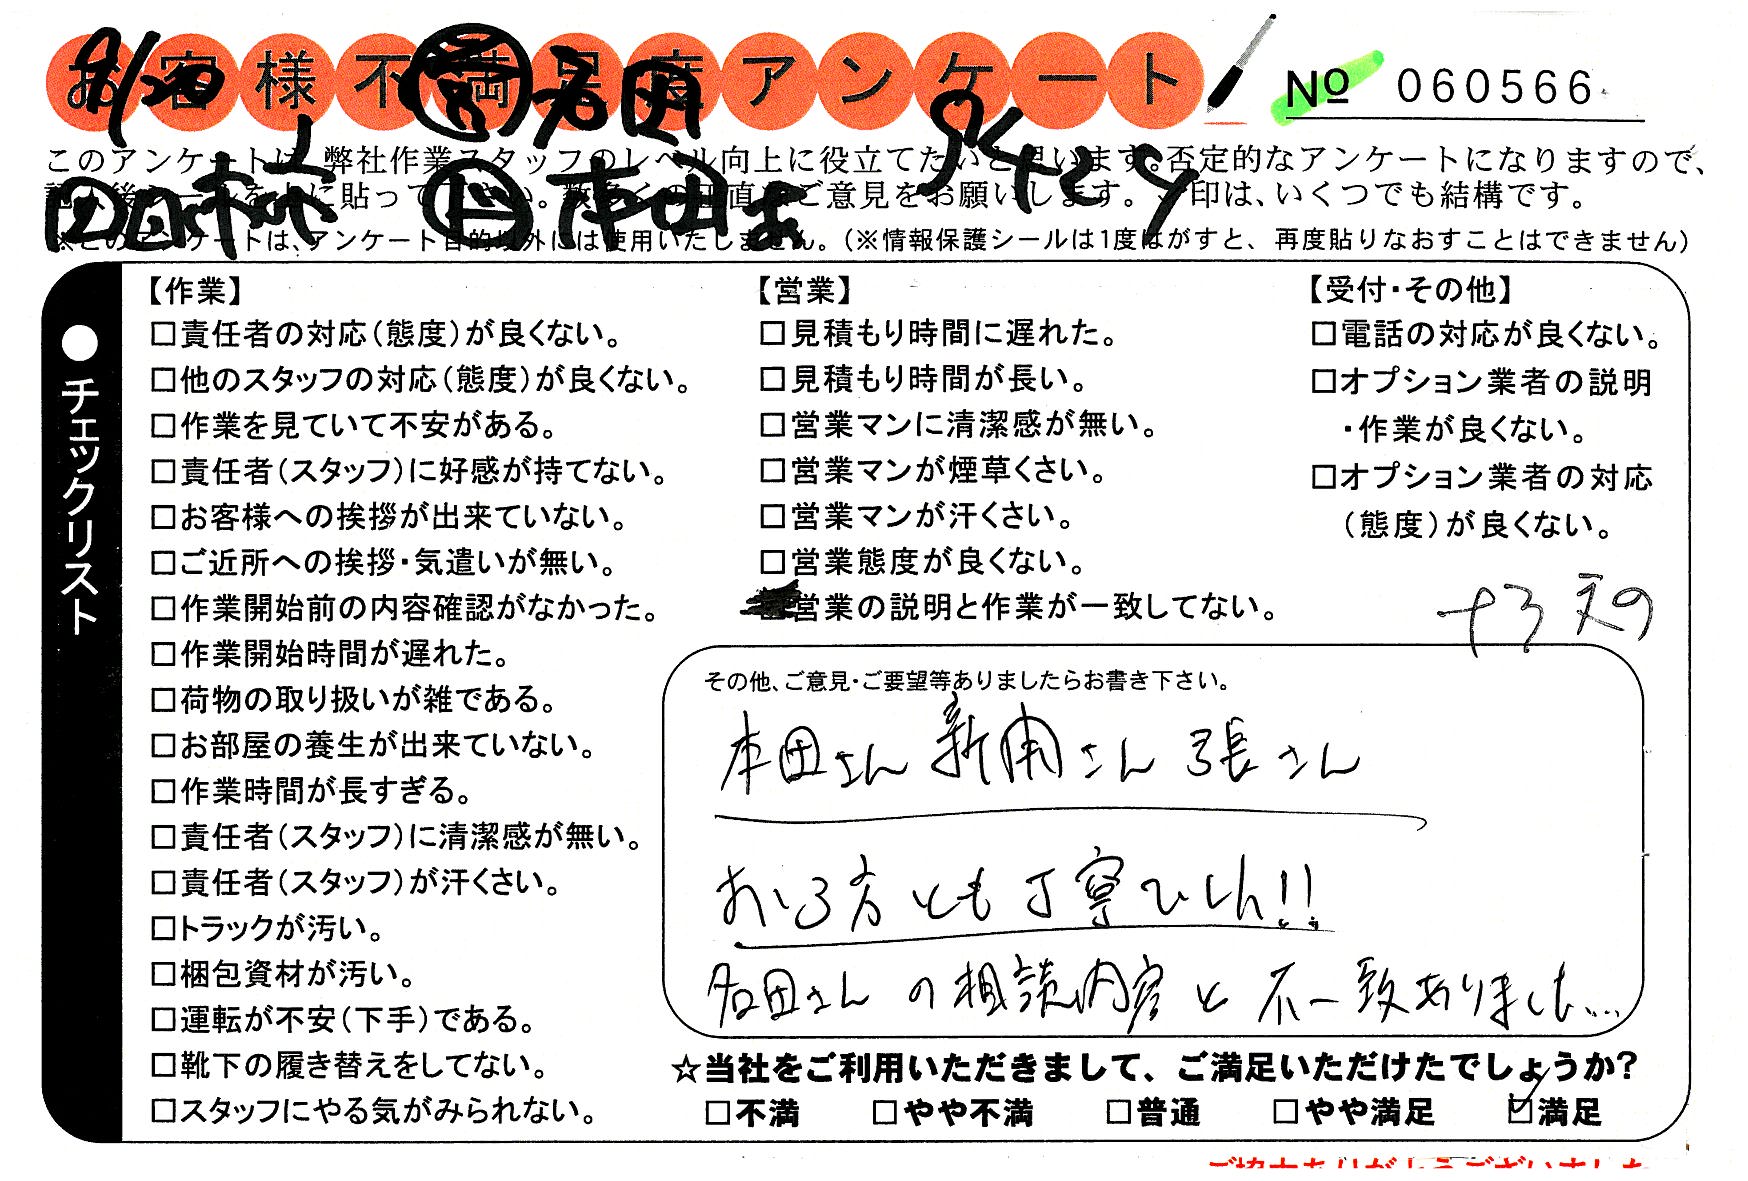 お客様不満足度アンケート
No 060566
9/30 営 名田
このアンケートは、弊社作業スタッフのレベル向上に役立てたいと思います。否定的なアンケートになりますので、
記入後シールを上に貼って下さい。数多くの正直なご意見をお願いします。✓印は、いくつでも結構です。
本田
※このアンケートは、アンケート目的以外には使用いたしません。（※情報保護シールは1度はがすと、再度貼りなおすことはできません）
●チェックリスト
【作業】
□責任者の対応（態度）が良くない。
□他のスタッフの対応（態度）が良くない。
□作業を見ていて不安がある。
□責任者（スタッフ）に好感が持てない。
□お客様への挨拶が出来ていない。
□ご近所への挨拶・気遣いが無い。
□作業開始前の内容確認がなかった。
□作業開始時間が遅れた。
□荷物の取り扱いが雑である。
□お部屋の養生が出来ていない。
□作業時間が長すぎる。
□責任者（スタッフ）に清潔感が無い。
□責任者（スタッフ）が汗くさい。
□トラックが汚い。
□梱包資材が汚い。
□運転が不安（下手）である。
□靴下の履き替えをしてない。
□スタッフにやる気がみられない。
【営業】
□見積もり時間に遅れた。
□見積もり時間が長い。
□営業マンに清潔感が無い。
□営業マンが煙草くさい。
□営業マンが汗くさい。
□営業態度が良くない。
営業の説明と作業が一致してない。
【受付・その他】
□電話の対応が良くない。
□オプション業者の説明
・作業が良くない。
□オプション業者の対応
（態度）が良くない。
その他、ご意見・ご要望等ありましたらお書き下さい。
本田さん 新開さん 張さん
お三方とも丁寧でした!!
名田さんの相談内容と不一致ありました…
☆当社をご利用いただきまして、ご満足いただけたでしょうか?
□不満 □やや不満 □普通 □やや満足 ☑満足
ご協力ありがとうございました